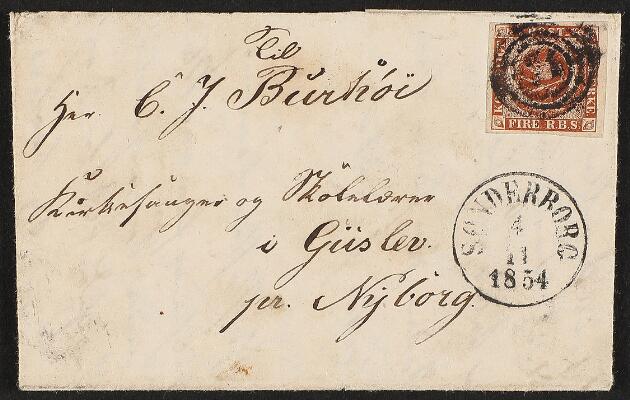 Til
Her. C. J. Burhöi
Kirkesanger og Skölelærer
i Giislev.
pr. Nÿborg.
FIRE R.B.S.
SØNDERBORG
4
11
1854